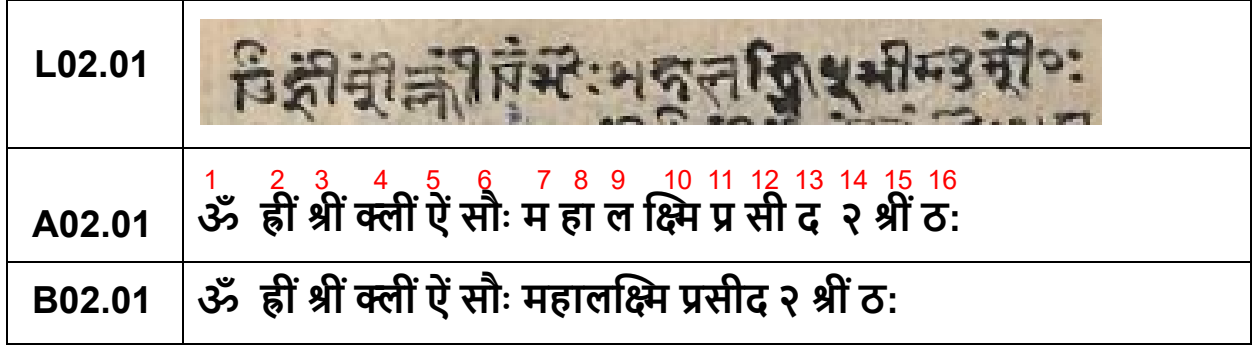 L02.01
1 2 3 4 5 6 7 8 9 10 11 12 13 14 15 16
A02.01 ॐ ह्रीं श्रीं क्लीं ऐं सौः म हा ल क्ष्मि प्र सी द २ श्रीं ठः
B02.01 ॐ ह्रीं श्रीं क्लीं ऐं सौः महालक्ष्मि प्रसीद २ श्रीं ठः